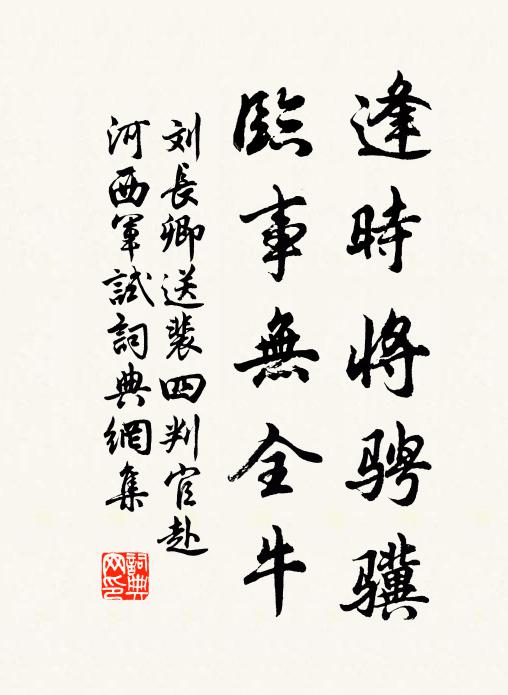 逢時将骋骥
臨事無全牛
刘長卿送裴四判官赴
河西軍試詞典網集
詞典网印